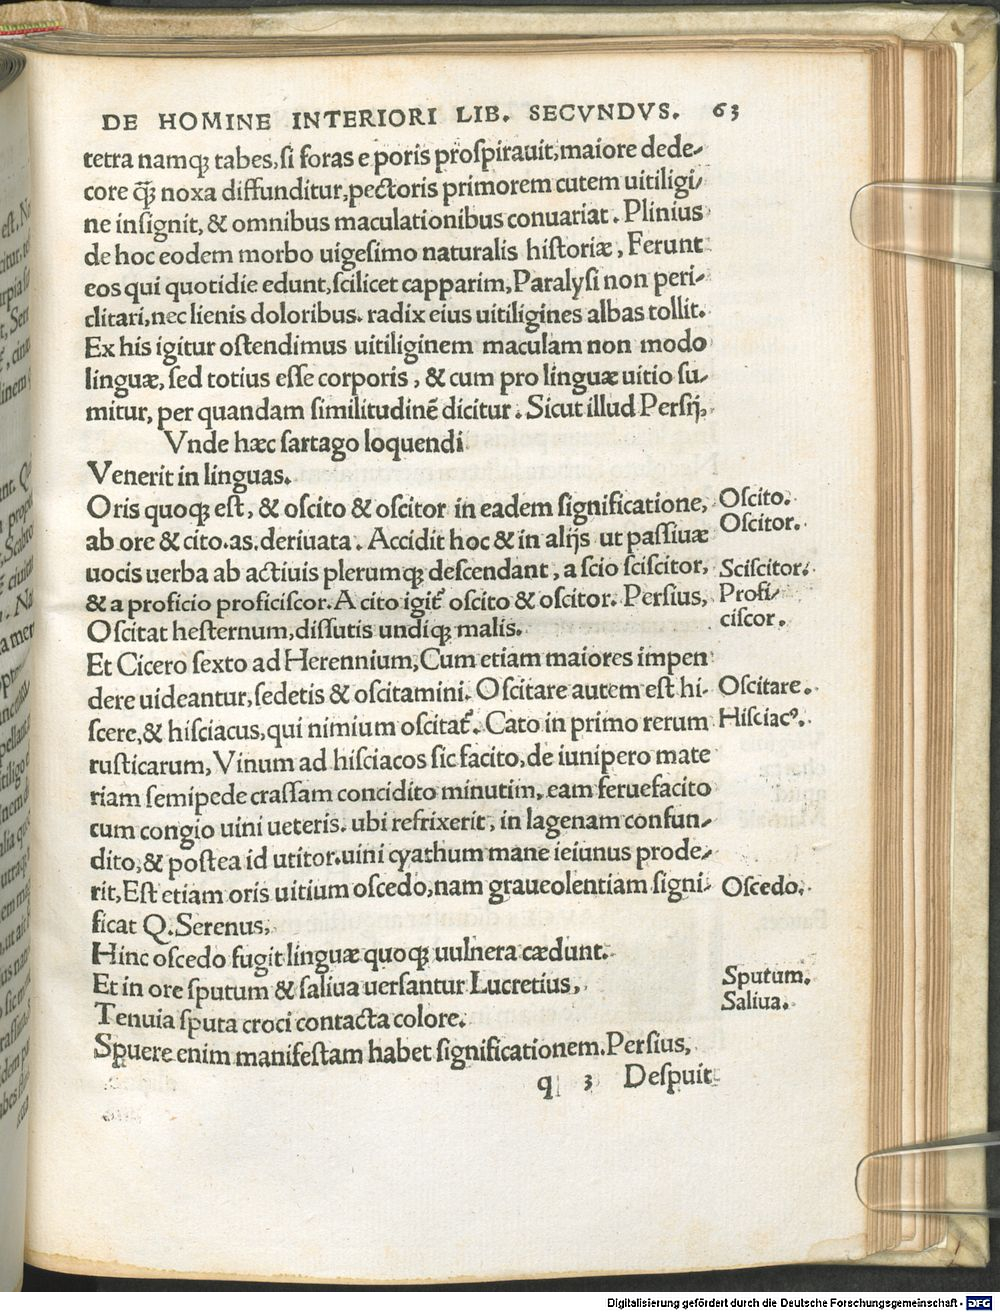 DE HOMINE INTERIORI LIB. SECVNDVS. 63
tetra namq̨ tabes, si foras e poris prospirauit, maiore dede-
core q̃ȝ noxa diffunditur, pectoris primorem cutem uitiligi-
ne insignit, & omnibus maculationibus conuariat. Plinius
de hoc eodem morbo uigesimo naturalis historiæ, Ferunt
eos qui quotidie edunt, scilicet capparim, Paralysi non peri-
clitari, nec lienis doloribus. radix eius uitiligines albas tollit.
Ex his igitur ostendimus uitiliginem maculam non modo
linguæ, sed totius esse corporis, & cum pro linguæ uitio su-
mitur, per quandam similitudinẽ dicitur. Sicut illud Persij,
Vnde hæc sartago loquendi
Venerit in linguas.
Oris quoq̨ est, & oscito & oscitor in eadem significatione, Oscito.
ab ore & cito.as.deriuata. Accidit hoc & in alijs ut passiuæ Oscitor.
uocis uerba ab actiuis plerumq̨ descendant, a scio sciscitor, Sciscitor.
& a proficio proficiscor. A cito igit᷑ oscito & oscitor. Persius, Profi-
Oscitat hesternum, dissutis undiq̨ malis. ciscor.
Et Cicero sexto ad Herennium, Cum etiam maiores impen
dere uideantur, sedetis & oscitamini. Oscitare autem est hi- Oscitare.
scere, & hisciacus, qui nimium oscitat᷑. Cato in primo rerum Hisciacꝰ.
rusticarum, Vinum ad hisciacos sic facito, de iunipero mate
riam semipede crassam concidito minutim, eam feruefacito
cum congio uini ueteris. ubi refrixerit, in lagenam confun-
dito, & postea id utitor. uini cyathum mane ieiunus prode-
rit, Est etiam oris uitium oscedo, nam graueolentiam signi- Oscedo.
ficat Q. Serenus,
Hinc oscedo fugit linguæ quoq̨ uulnera cædunt.
Et in ore sputum & saliua uersantur Lucretius, Sputum.
Saliua.
Tenuia sputa croci contacta colore.
Spuere enim manifestam habet significationem. Persius,
q 3 Despuit
Digitalisierung gefördert durch die Deutsche Forschungsgemeinschaft - DFG